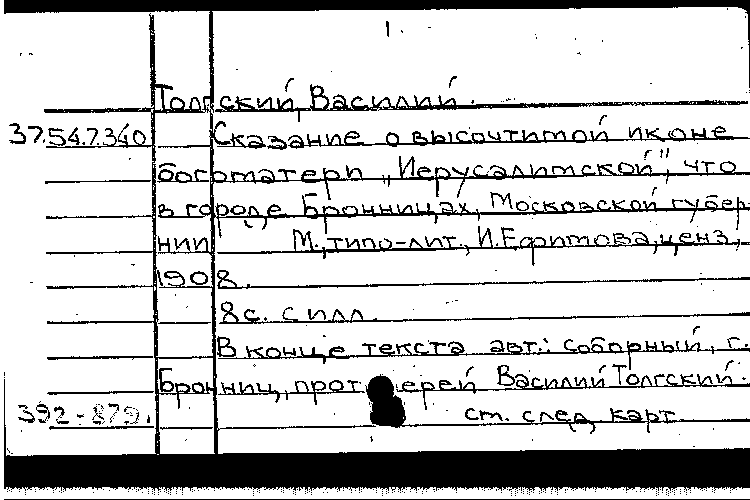 1.
Толгский, Василий.
37.54.7.340 Сказание о высочтимой иконе
богоматери „Иерусалимской", что
в городе Бронницах, Московской губер-
нии М., типо-лит., И.Ефимова, ценз.,
1908.
8с. с илл.
В конце текста авт.: соборный, г.
Бронниц, прот ерей Василий Толгский.
392-879. см. след. карт.